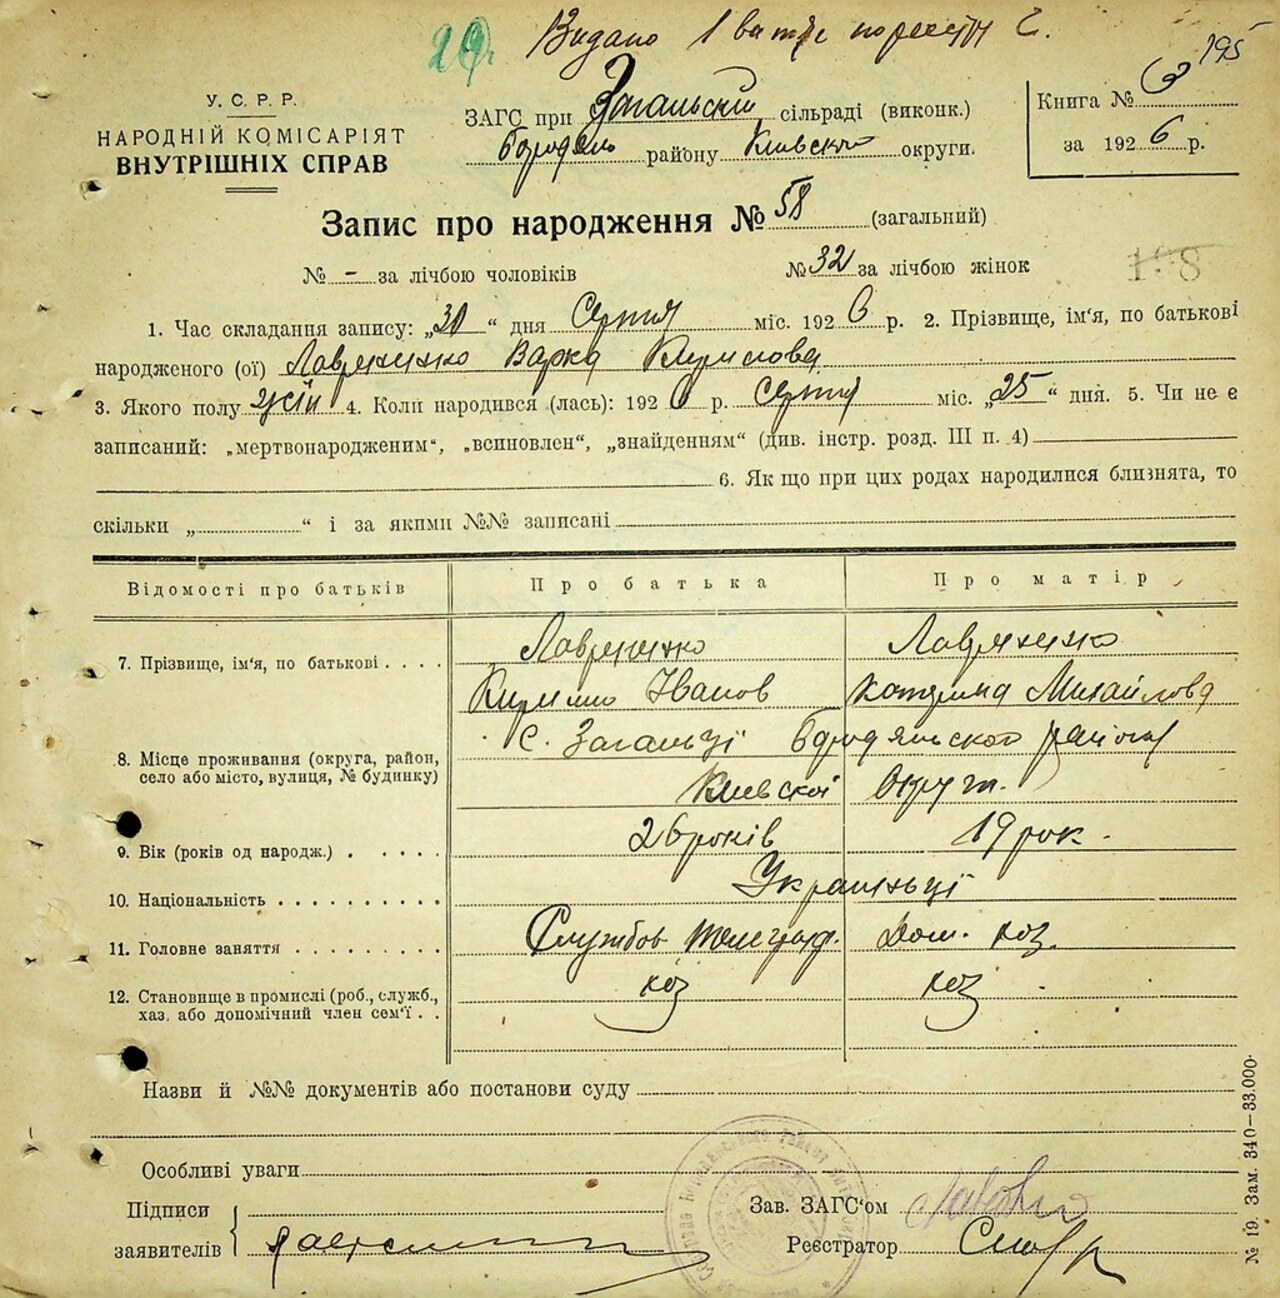 29
Видано 1 витяг по реєстру
195
У. С. Р. Р.
НАРОДНІЙ КОМІСАРІЯТ
ВНУТРІШНІХ СПРАВ
ЗАГС при Загальский сільраді (виконк.)
району Київской округи.
Книга № 3
за 1926 р.
Запис про народження № 58 (загальний)
№ - за лічбою чоловіків № 32 за лічбою жінок
198
1. Час складання запису: „30“ дня Серпня міс. 1926 р. 2. Прізвище, ім'я, по батькові
народженого (ої) Лавриненко Варка Кирилова
3. Якого полу жін 4. Коли народився (лась): 1926 р. Серпня міс. „25“ дня. 5. Чи не є
записаний: „мертвонародженим“, „всиновлен“, „знайденням“ (див. інстр. розд. III п. 4)
6. Як що при цих родах народилися близнята, то
скільки „ “ і за якими №№ записані
Відомості про батьків Про батька Про матір
7. Прізвище, ім'я, по батькові . . . . Лавриненко Лавриненко
Кирило Іванов Катерина Михайлова
8. Місце проживання (округа, район, село або місто, вулиця, № будинку) С. Загальці Бородянського району
Київской Округи.
9. Вік (років од народж.) . . . . . 26 років 19 рок.
10. Національність . . . . . . . . . . Українці
11. Головне заняття . . . . . . . . . Службов телеграф. Дом. хоз.
12. Становище в промислі (роб., служб., хаз. або допомічний член сем'ї . . хоз хоз
Назви й №№ документів або постанови суду
Особливі уваги
Підписи
заявителів
Зав. ЗАГС'ом
Реєстратор
№ 19. Зам. 340—33.000.